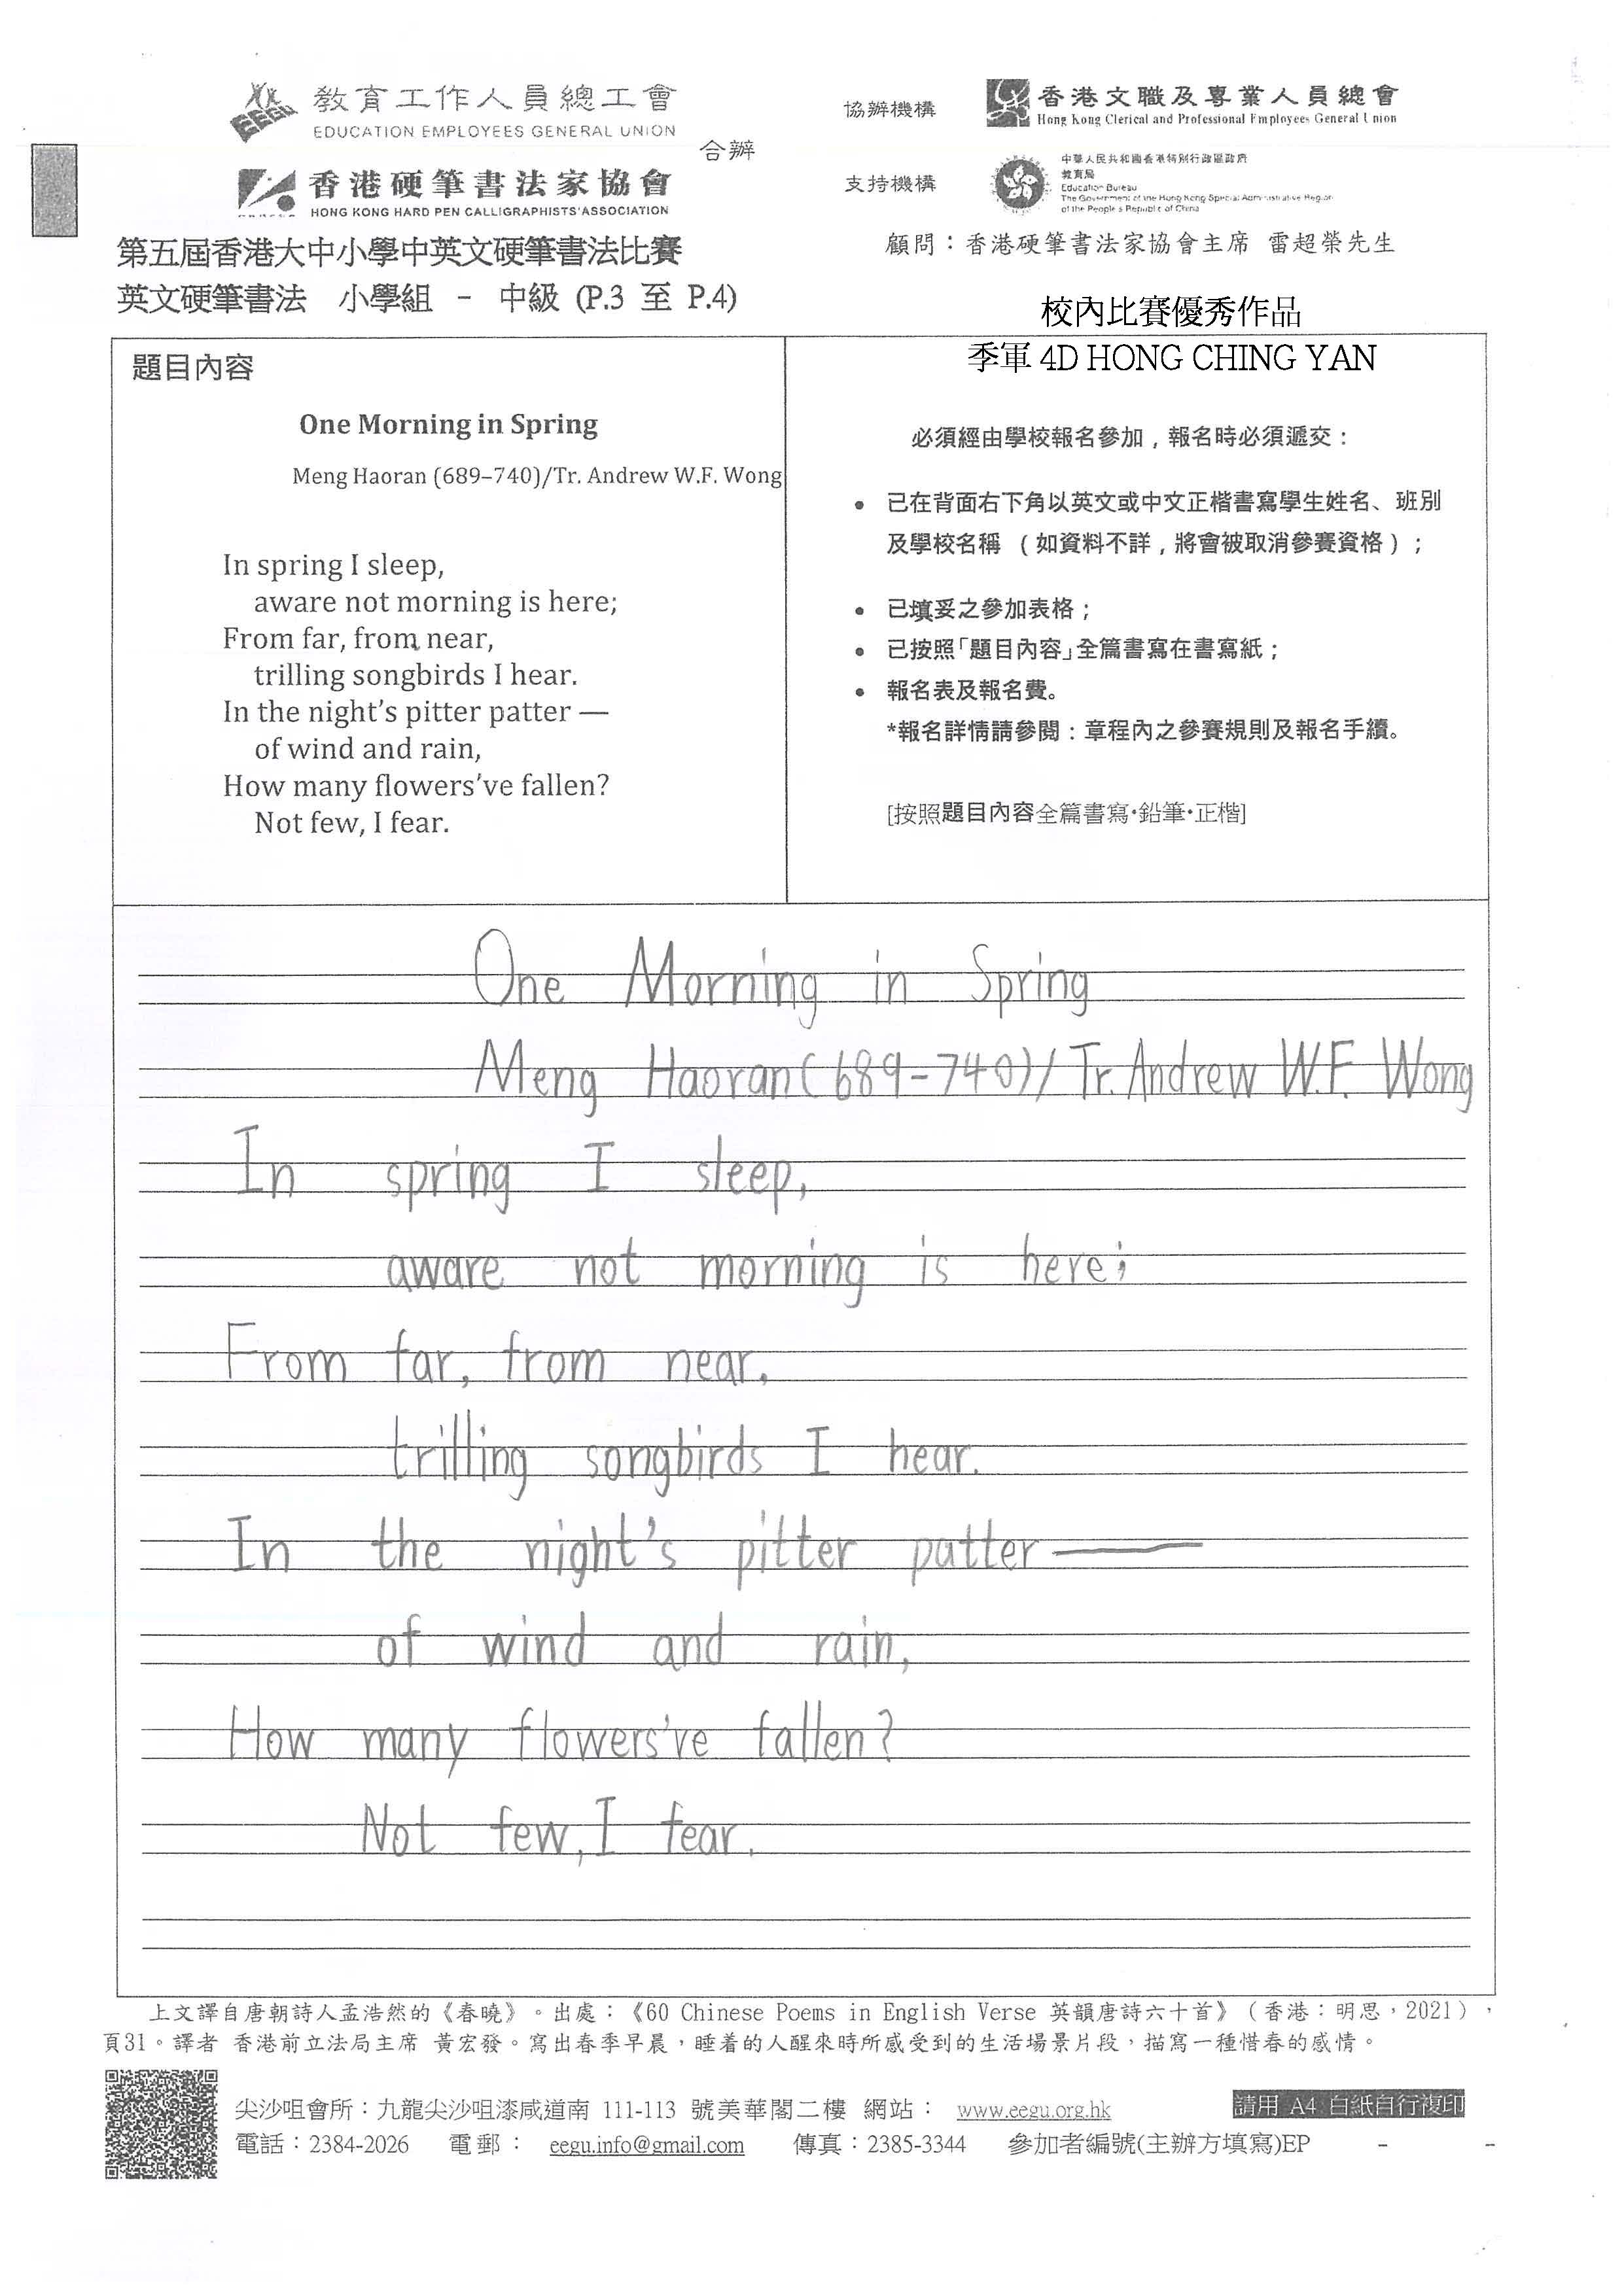 教育工作人員總工會
EDUCATION EMPLOYEES GENERAL UNION
合辦
香港硬筆書法家協會
HONG KONG HARD PEN CALLIGRAPHISTS'ASSOCIATION
協辦機構
香港文職及專業人員總會
Hong Kong Clerical and Professional Employees General Union
支持機構
中華人民共和國香港特別行政區政府
教育局
Education Bureau
The Government of the Hong Kong Special Administrative Region
of the People's Republic of China
第五屆香港大中小學中英文硬筆書法比賽
英文硬筆書法 小學組 - 中級 (P.3 至 P.4)
顧問：香港硬筆書法家協會主席 雷超榮先生
校內比賽優秀作品
季軍 4D HONG CHING YAN
題目內容
One Morning in Spring
Meng Haoran (689–740)/Tr. Andrew W.F. Wong
In spring I sleep,
aware not morning is here;
From far, from near,
trilling songbirds I hear.
In the night's pitter patter —
of wind and rain,
How many flowers've fallen?
Not few, I fear.
必須經由學校報名參加，報名時必須遞交：
• 已在背面右下角以英文或中文正楷書寫學生姓名、班別
及學校名稱 （如資料不詳，將會被取消參賽資格）；
• 已填妥之參加表格；
• 已按照「題目內容」全篇書寫在書寫紙；
• 報名表及報名費。
*報名詳情請參閱：章程內之參賽規則及報名手續。
[按照題目內容全篇書寫•鉛筆•正楷]
One Morning in Spring
Meng Haoran (689-740)/ Tr. Andrew W.F. Wong
In spring I sleep,
aware not morning is here;
From far, from near,
trilling songbirds I hear.
In the night's pitter patter —
of wind and rain,
How many flowers've fallen?
Not few, I fear.
上文譯自唐朝詩人孟浩然的《春曉》。出處：《60 Chinese Poems in English Verse 英韻唐詩六十首》（香港：明思，2021），
頁31。譯者 香港前立法局主席 黃宏發。寫出春季早晨，睡着的人醒來時所感受到的生活場景片段，描寫一種惜春的感情。
尖沙咀會所：九龍尖沙咀漆咸道南 111-113 號美華閣二樓 網站： www.eegu.org.hk
請用 A4 白紙自行複印
電話：2384-2026 電郵： eegu.info@gmail.com 傳真：2385-3344 參加者編號(主辦方填寫)EP - -